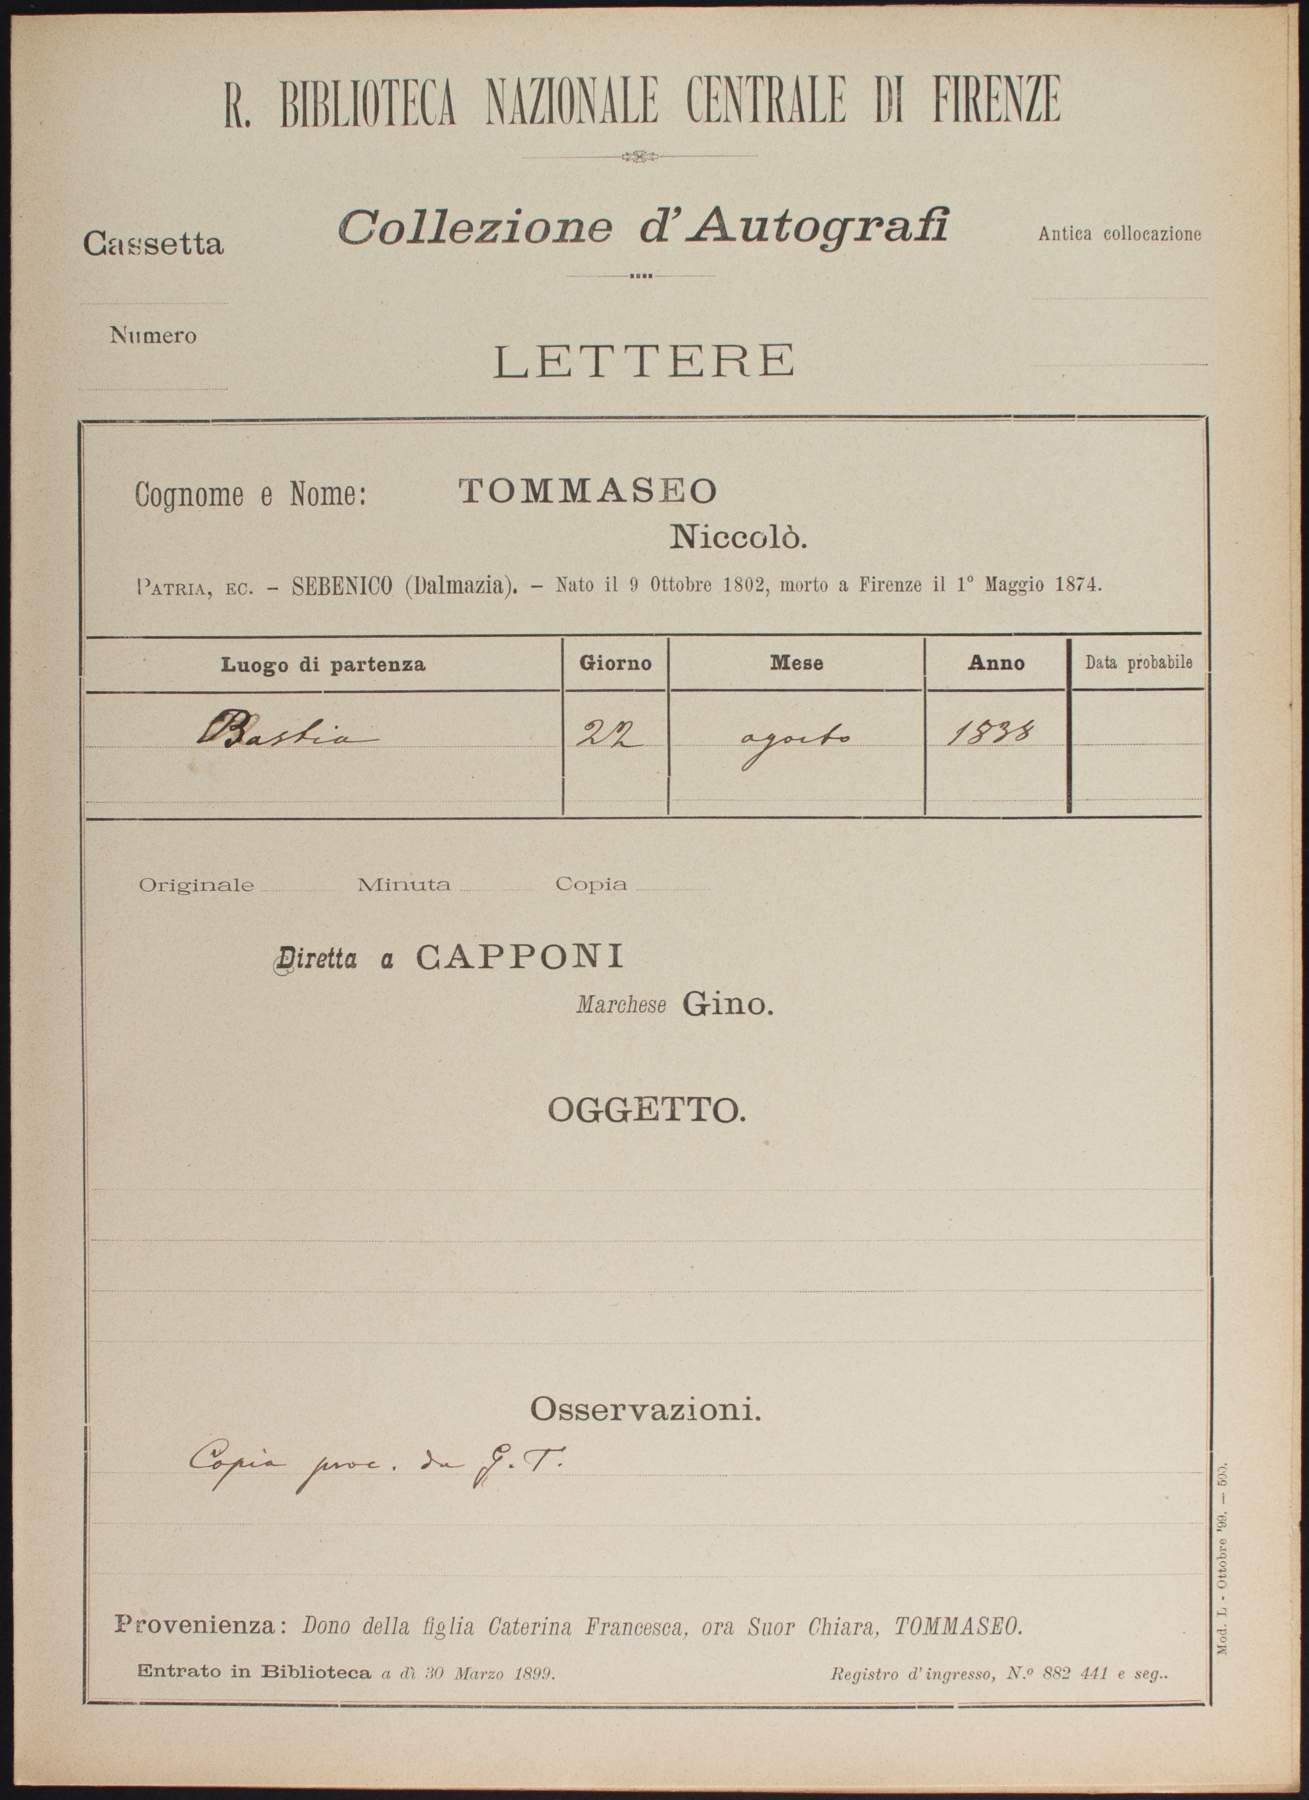 R. BIBLIOTECA NAZIONALE CENTRALE DI FIRENZE
Cassetta
Collezione d'Autografi
Antica collocazione
Numero
LETTERE
Cognome e Nome: TOMMASEO
Niccolò.
PATRIA, EC. – SEBENICO (Dalmazia). – Nato il 9 Ottobre 1802, morto a Firenze il 1° Maggio 1874.
Luogo di partenza Giorno Mese Anno Data probabile
Bastia 22 agosto 1838
Originale Minuta Copia
Diretta a CAPPONI
Marchese Gino.
OGGETTO.
Osservazioni.
Copia proc. da G. T.
Provenienza: Dono della figlia Caterina Francesca, ora Suor Chiara, TOMMASEO.
Entrato in Biblioteca a dì 30 Marzo 1899. Registro d'ingresso, N.º 882 441 e seg..
Mod. L - Ottobre '99. — 500.